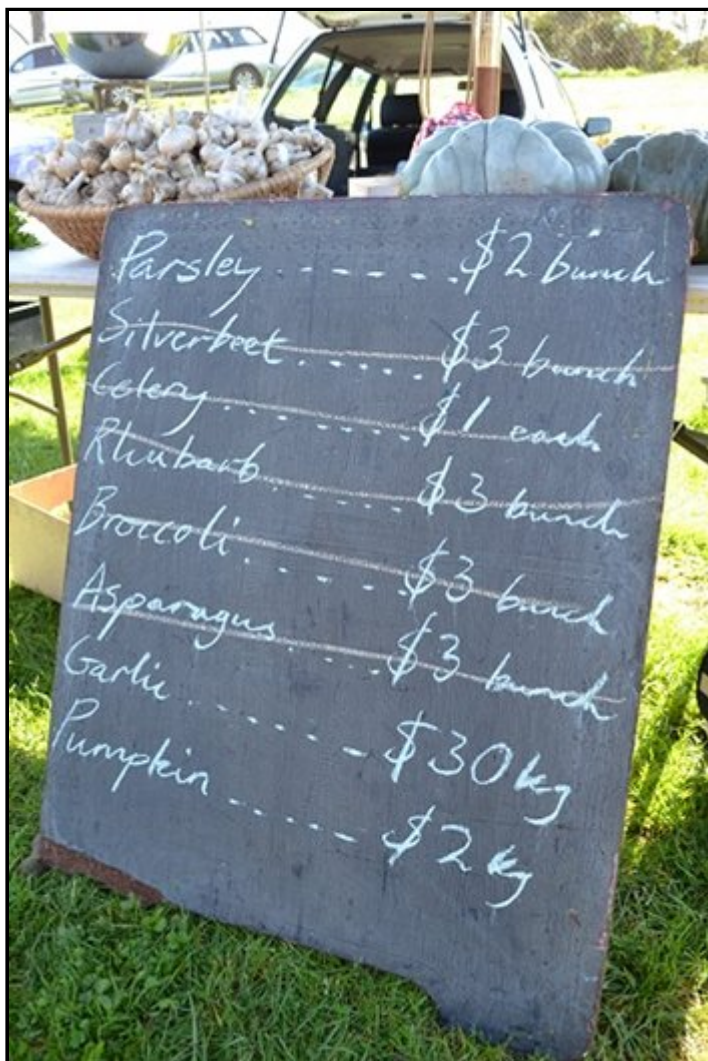 Parsley ...... $2 bunch
Silverbeet ...... $3 bunch
Celery ...... $1 each
Rhubarb ...... $3 bunch
Broccoli ...... $3 bunch
Asparagus ...... $3 bunch
Garlic ...... $30 kg
Pumpkin ...... $2 kg